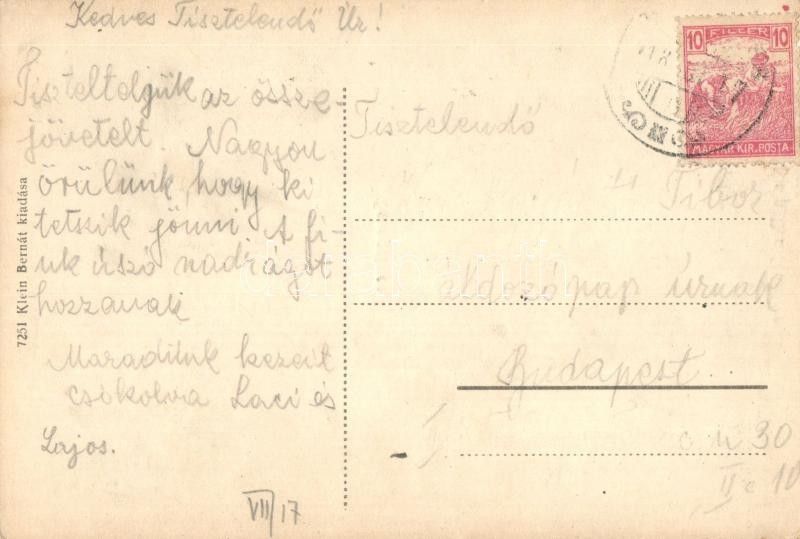 Kedves Tisztelendő Úr!
Tiszteltetjük az össze-
jövetelt. Nagyon
örülünk, hogy ki
tetszik jönni A fi-
uk úszó nadrágot
hozzanak
Maradunk kezeit
csókolva Laci és
Lajos.
VII/17
7251 Klein Bernát kiadása
10 FILLÉR 10
MAGYAR KIR. POSTA
Tisztelendő
Tibor
áldozópap úrnak
Budapest.
I.
u 30
II e 10